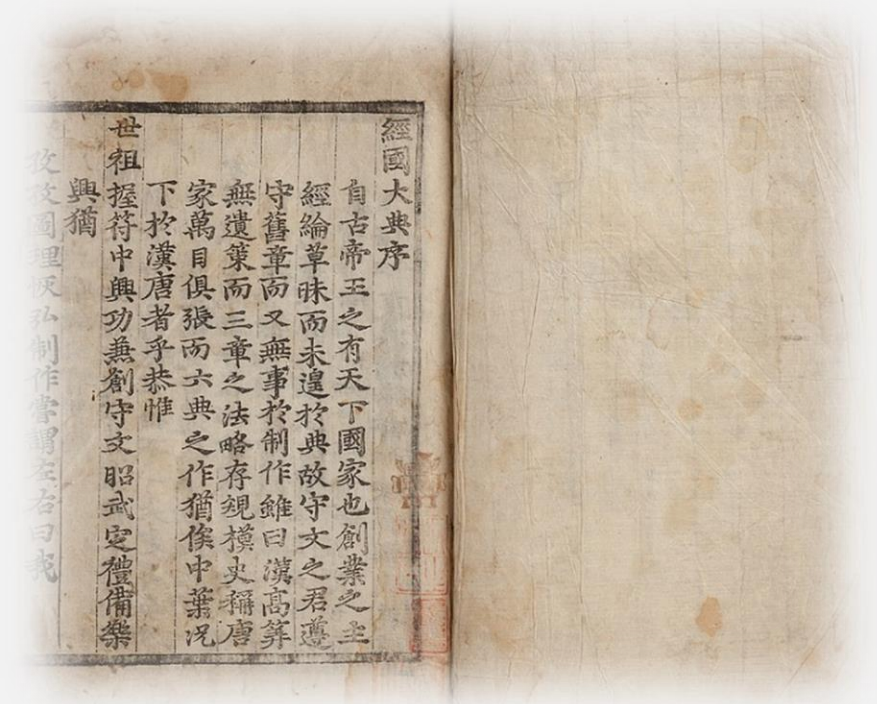 經國大典序
自古帝王之有天下國家也創業之主
經綸草昧而未遑於典故守文之君遵
守舊章而又無事於制作雖曰漢高筭
無遺策而三章之法略存䂓模史稱唐
家萬目俱張而六典之作猶俟中葉况
下於漢唐者乎恭惟
世祖握符中興功兼創守文昭武定禮備樂
興猶
孜孜圖理恢弘制作嘗謂左右曰我